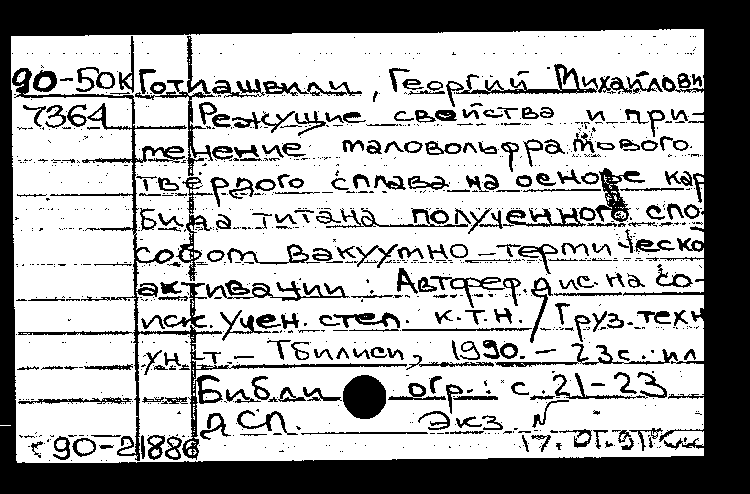 90-50К Готиашвили, Георгий Михайлови
7364 Режущие свойства и при-
менение маловольфрамового
твердого сплава на основе кар
бида титана полученного спо-
собом вакуумно-термическо
активации: Автореф. дис. на со-
иск. учен. степ. к.т.н. / Груз. техн
ун-т. - Тбилиси, 1990. - 23с.: ил
Библиогр.: с. 21-23
ДСП. Экз. N
90-21886 17.01.91